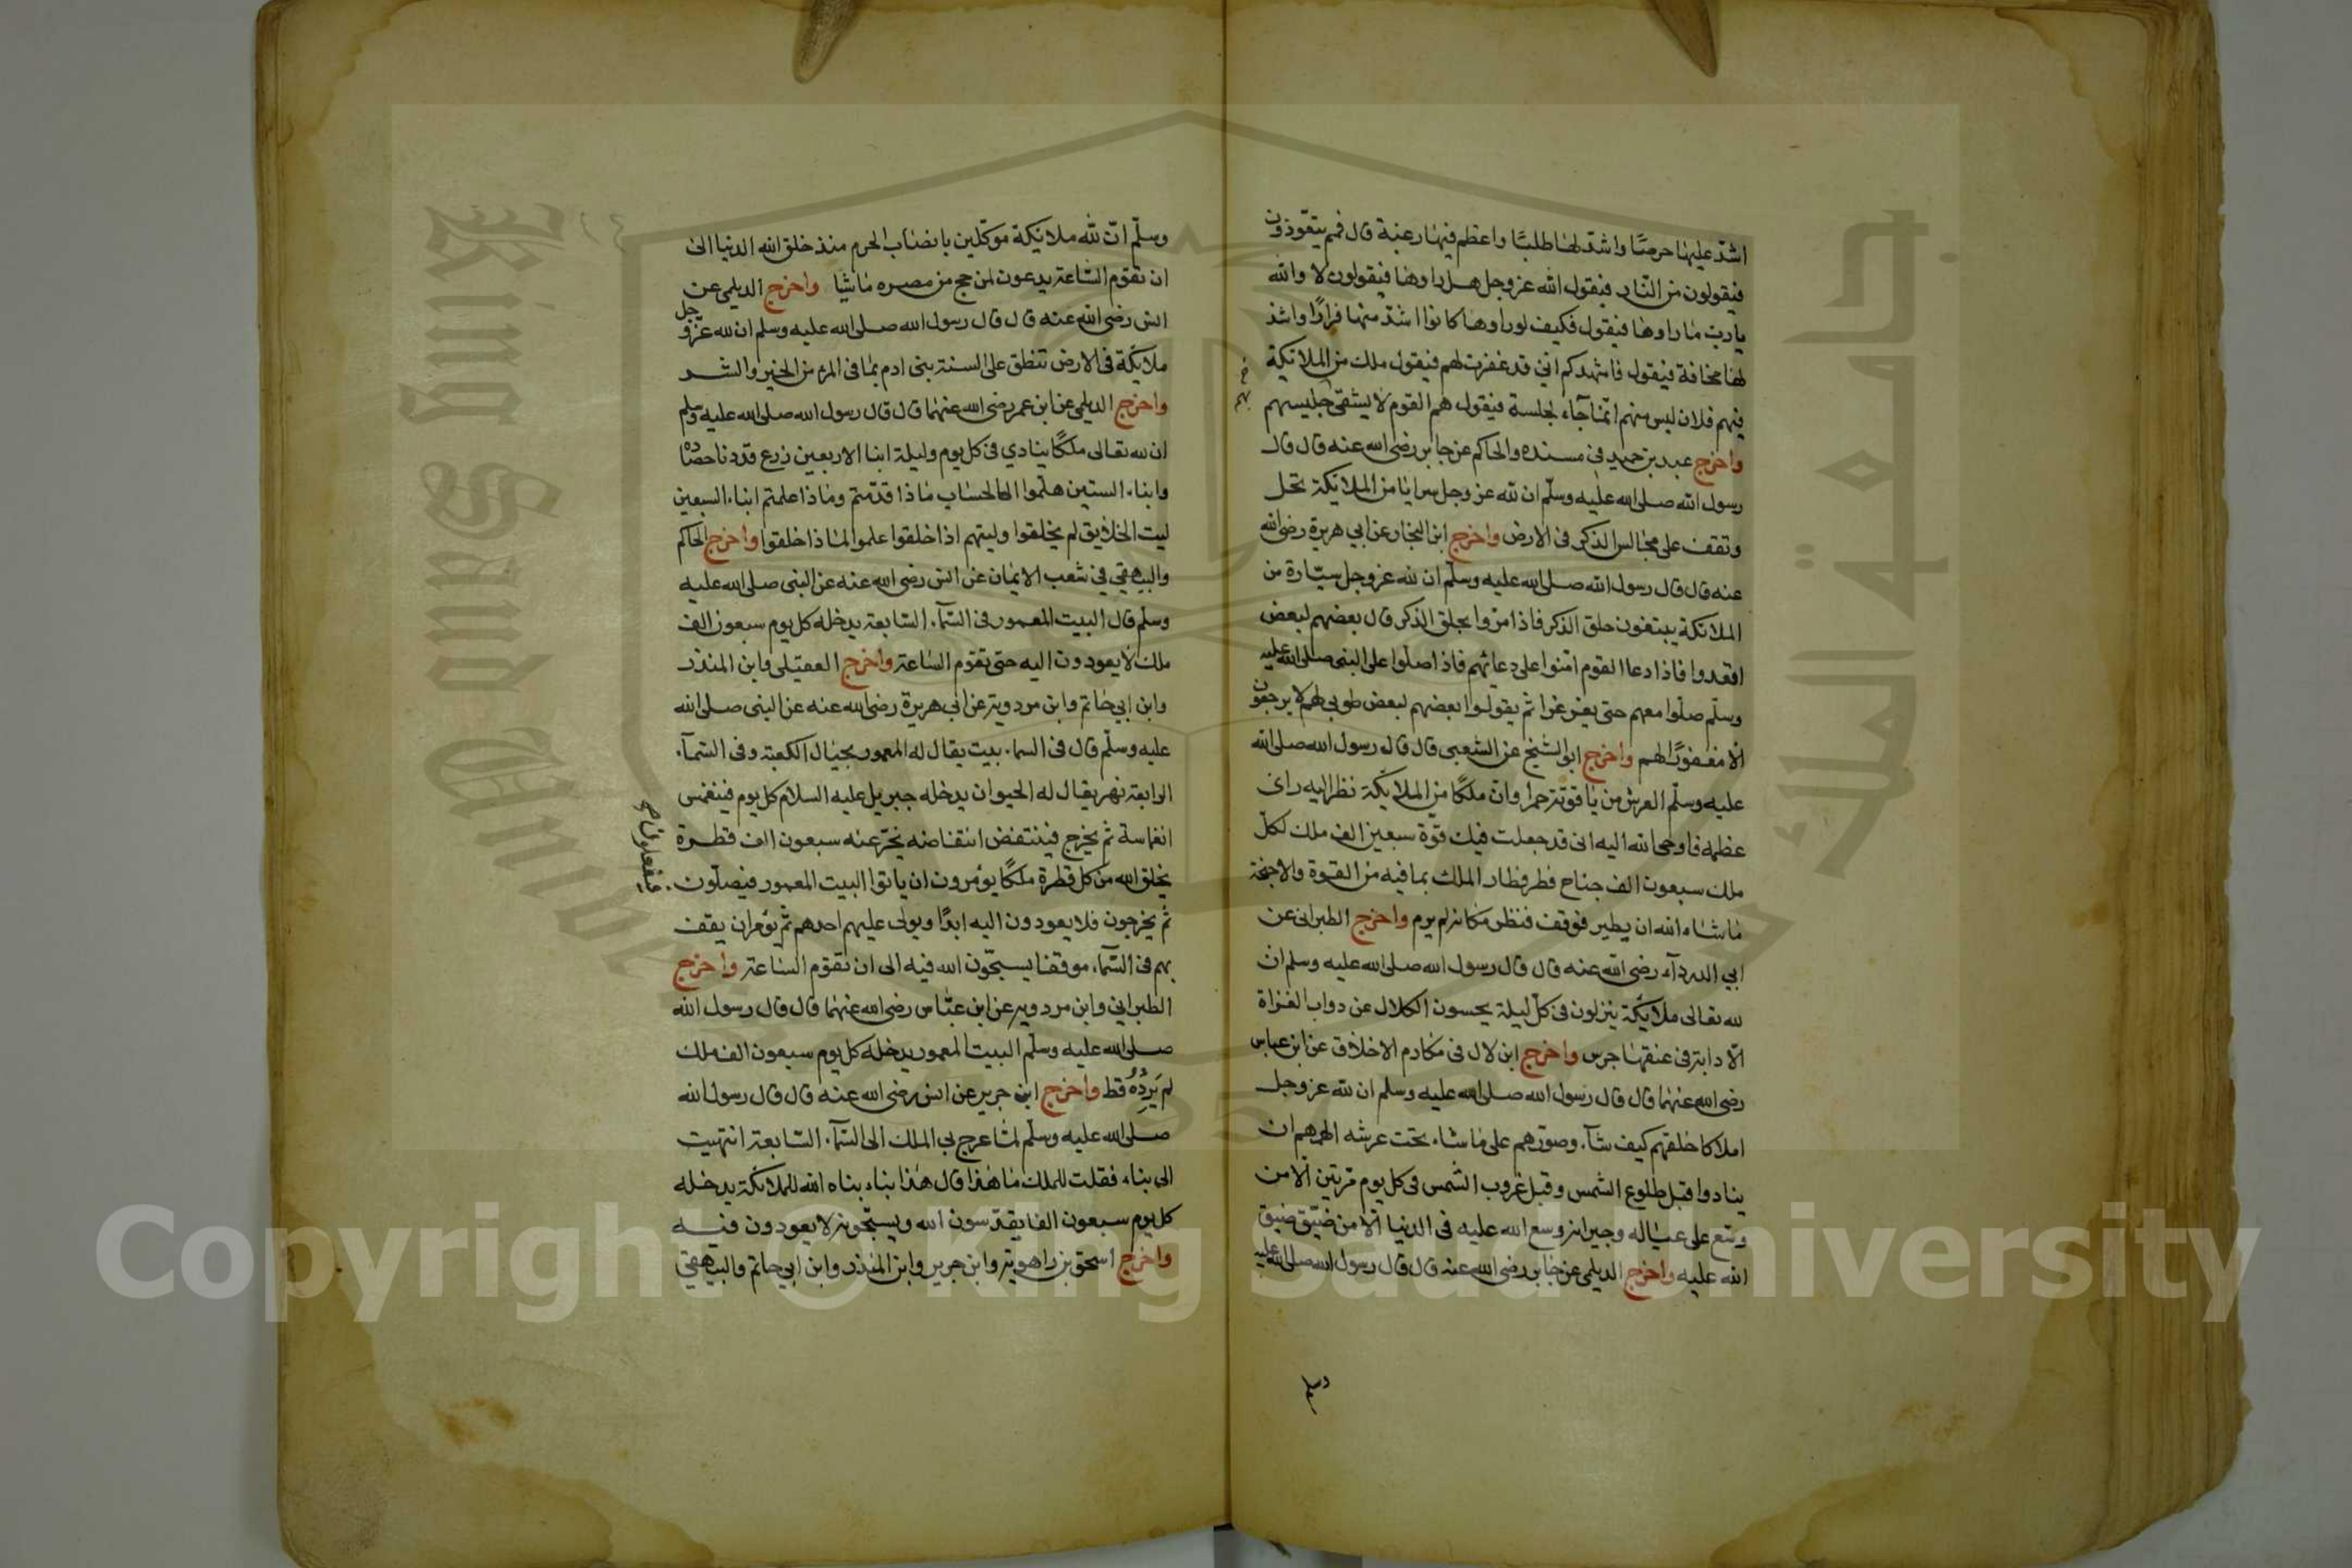 اشدّ عليها حرصًا واشدّ لها طلبًا واعظم فيها رغبة قال فمم يتعّوذون
فيقولون من النّار فيقول الله عز وجل هل راوها فيقولون لا والله
يارب ما راوها فيقول فكيف لو راوها كانوا اشدّ منها فرارًا واشد
لها مخافة فيقول فاشهدكم انيّ قد غفرت لهم فيقول ملك من الملائكة
فيهم فلان ليس منهم انّما جآء لحاجة فيقول هم القوم لا يشقى جليسهم
بهم
واخرج عبد بن حميد في مسنده والحاكم عن جابر رضى الله عنه قال قال
رسول الله صلى الله عليه وسلّم ان لله عز وجل سرايا من الملائكة تحل
وتقف على مجالس الذكر فى الارض واخرج ابن النجار عن ابي هريرة رضى الله
عنه قال قال رسول الله صلى الله عليه وسلّم ان لله عز وجل سيّارة من
الملائكة يبتغون حلق الذكر فاذا مرّوا بحلق الذكر قال بعضهم لبعض
اقعدوا فاذا دعا القوم امّنوا على دعائهم فاذا صلّوا على النبى صلى الله عليه
وسلّم صلّوا معهم حتى يفرغوا ثم يقولوا بعضهم لبعض طوبى لهم لا يرجعون
الّا مغفورًا لهم واخرج ابو الشيخ عن الشعبى قال قال رسول الله صلى الله
عليه وسلّم العرش من ياقوتة حمرا وانّ ملكًا من الملائكة نظر اليه راى
عظمه فاوحى الله اليه انى قد جعلت فيك قوّة سبعين الف ملك لكلّ
ملك سبعون الف جناح فطر فطار الملك بما فيه من القوة والاجنحة
ما شاء الله ان يطير فوقف فنظر مكانه لم يرم واخرج الطبرانى عن
ابي الدردآء رضى الله عنه قال قال رسول الله صلى الله عليه وسلم ان
لله تعالى ملائكة ينزلون فى كلّ ليلة يحسون الكلال عن دواب الغزاة
الّا دابة فى عنقها جرس واخرج ابن لال فى مكارم الاخلاق عن ابن عباس
رضى الله عنهما قال قال رسول الله صلى الله عليه وسلم ان لله عز وجل
املاكا خلقهم كيف شآء وصوّرهم على ما شاء تحت عرشه الهمهم ان
ينادوا قبل طلوع الشمس وقبل غروب الشمس فى كل يوم مرتين الا من
وسّع على عياله وجيرانه وسع الله عليه فى الدنيا الا من ضيّق ضيق
الله عليه واخرج الديلمى عن جابر رضى الله عنه قال قال رسول الله صلى الله عليه
وسلم
وسلّم انّ لله ملائكة موكّلين بانصاب الحرم منذ خلق الله الدنيا الى
ان تقوم السّاعة يدعون لمن حج من مصره ماشيا واخرج الديلمى عن
انس رضى الله عنه قال قال رسول الله صلى الله عليه وسلم ان لله عزّ وجل
ملائكة فى الارض تنطق على السنة بنى ادم بما فى المرء من الخير والشر
واخرج الديلمى عن ابن عمر رضى الله عنهما قال قال رسول الله صلى الله عليه وسلّم
ان لله تعالى ملكًا ينادي فى كل يوم وليلة ابنا الاربعين زرع قد دنا حصاده
وابناء الستين هلّموا الى الحساب ماذا قدّمتم وماذا عملتم ابناء السبعين
ليت الخلائق لم يخلقوا وليتهم اذا خلقوا علموا لماذا خلقوا واخرج الحاكم
والبيهقي في شعب الايمان عن انس رضى الله عنه عن النبى صلى الله عليه
وسلّم قال البيت المعمور فى السّمآء السّابعة يدخله كل يوم سبعون الف
ملك لا يعودون اليه حتى تقوم الساعة واخرج العقيلى وابن المنذر
وابن ابي حاتم وابن مردوية عن ابى هريرة رضى الله عنه عن النبى صلى الله
عليه وسلّم قال فى السماء بيت يقال له المعمور بحيال الكعبة وفى السّمآء
الرابعة نهر يقال له الحيوان يدخله جبريل عليه السلام كل يوم فينغمس
انغماسة ثم يخرج فينتفض انتفاضه يخرّ عنه سبعون الف قطرة
يخلق الله من كل قطرة ملكًا يؤمرون ان ياتوا البيت المعمور فيصلّون
فيفعلون
ثم يخرجون فلا يعودون اليه ابدًا ويولى عليهم احدهم ثمّ يؤمر ان يقف
بهم فى السّمآء موقفا يسبّحون الله فيه الى ان تقوم الساعة واخرج
الطبراني وابن مردويه عن ابن عبّاس رضى الله عنهما قال قال رسول الله
صلى الله عليه وسلّم البيت المعمور يدخله كل يوم سبعون الف ملك
لم يَرِدُوُه قط واخرج ابن جرير عن انس رضى الله عنه قال قال رسول الله
صلى الله عليه وسلّم لمّا عرج بى الملك الى السّمآء السّابعة انتهيت
الى بناء فقلت للملك ما هذا قال هذا بناء بناه الله للملائكة يدخله
كل يوم سبعون الفا يقدّسون الله ويسبّحونه لا يعودون فيه
واخرج اسحق بن راهوية وابن جرير وابن المنذر وابن ابي حاتم والبيهقي
جامعة الملك
King Saud University
1957
Copyright © King Saud University